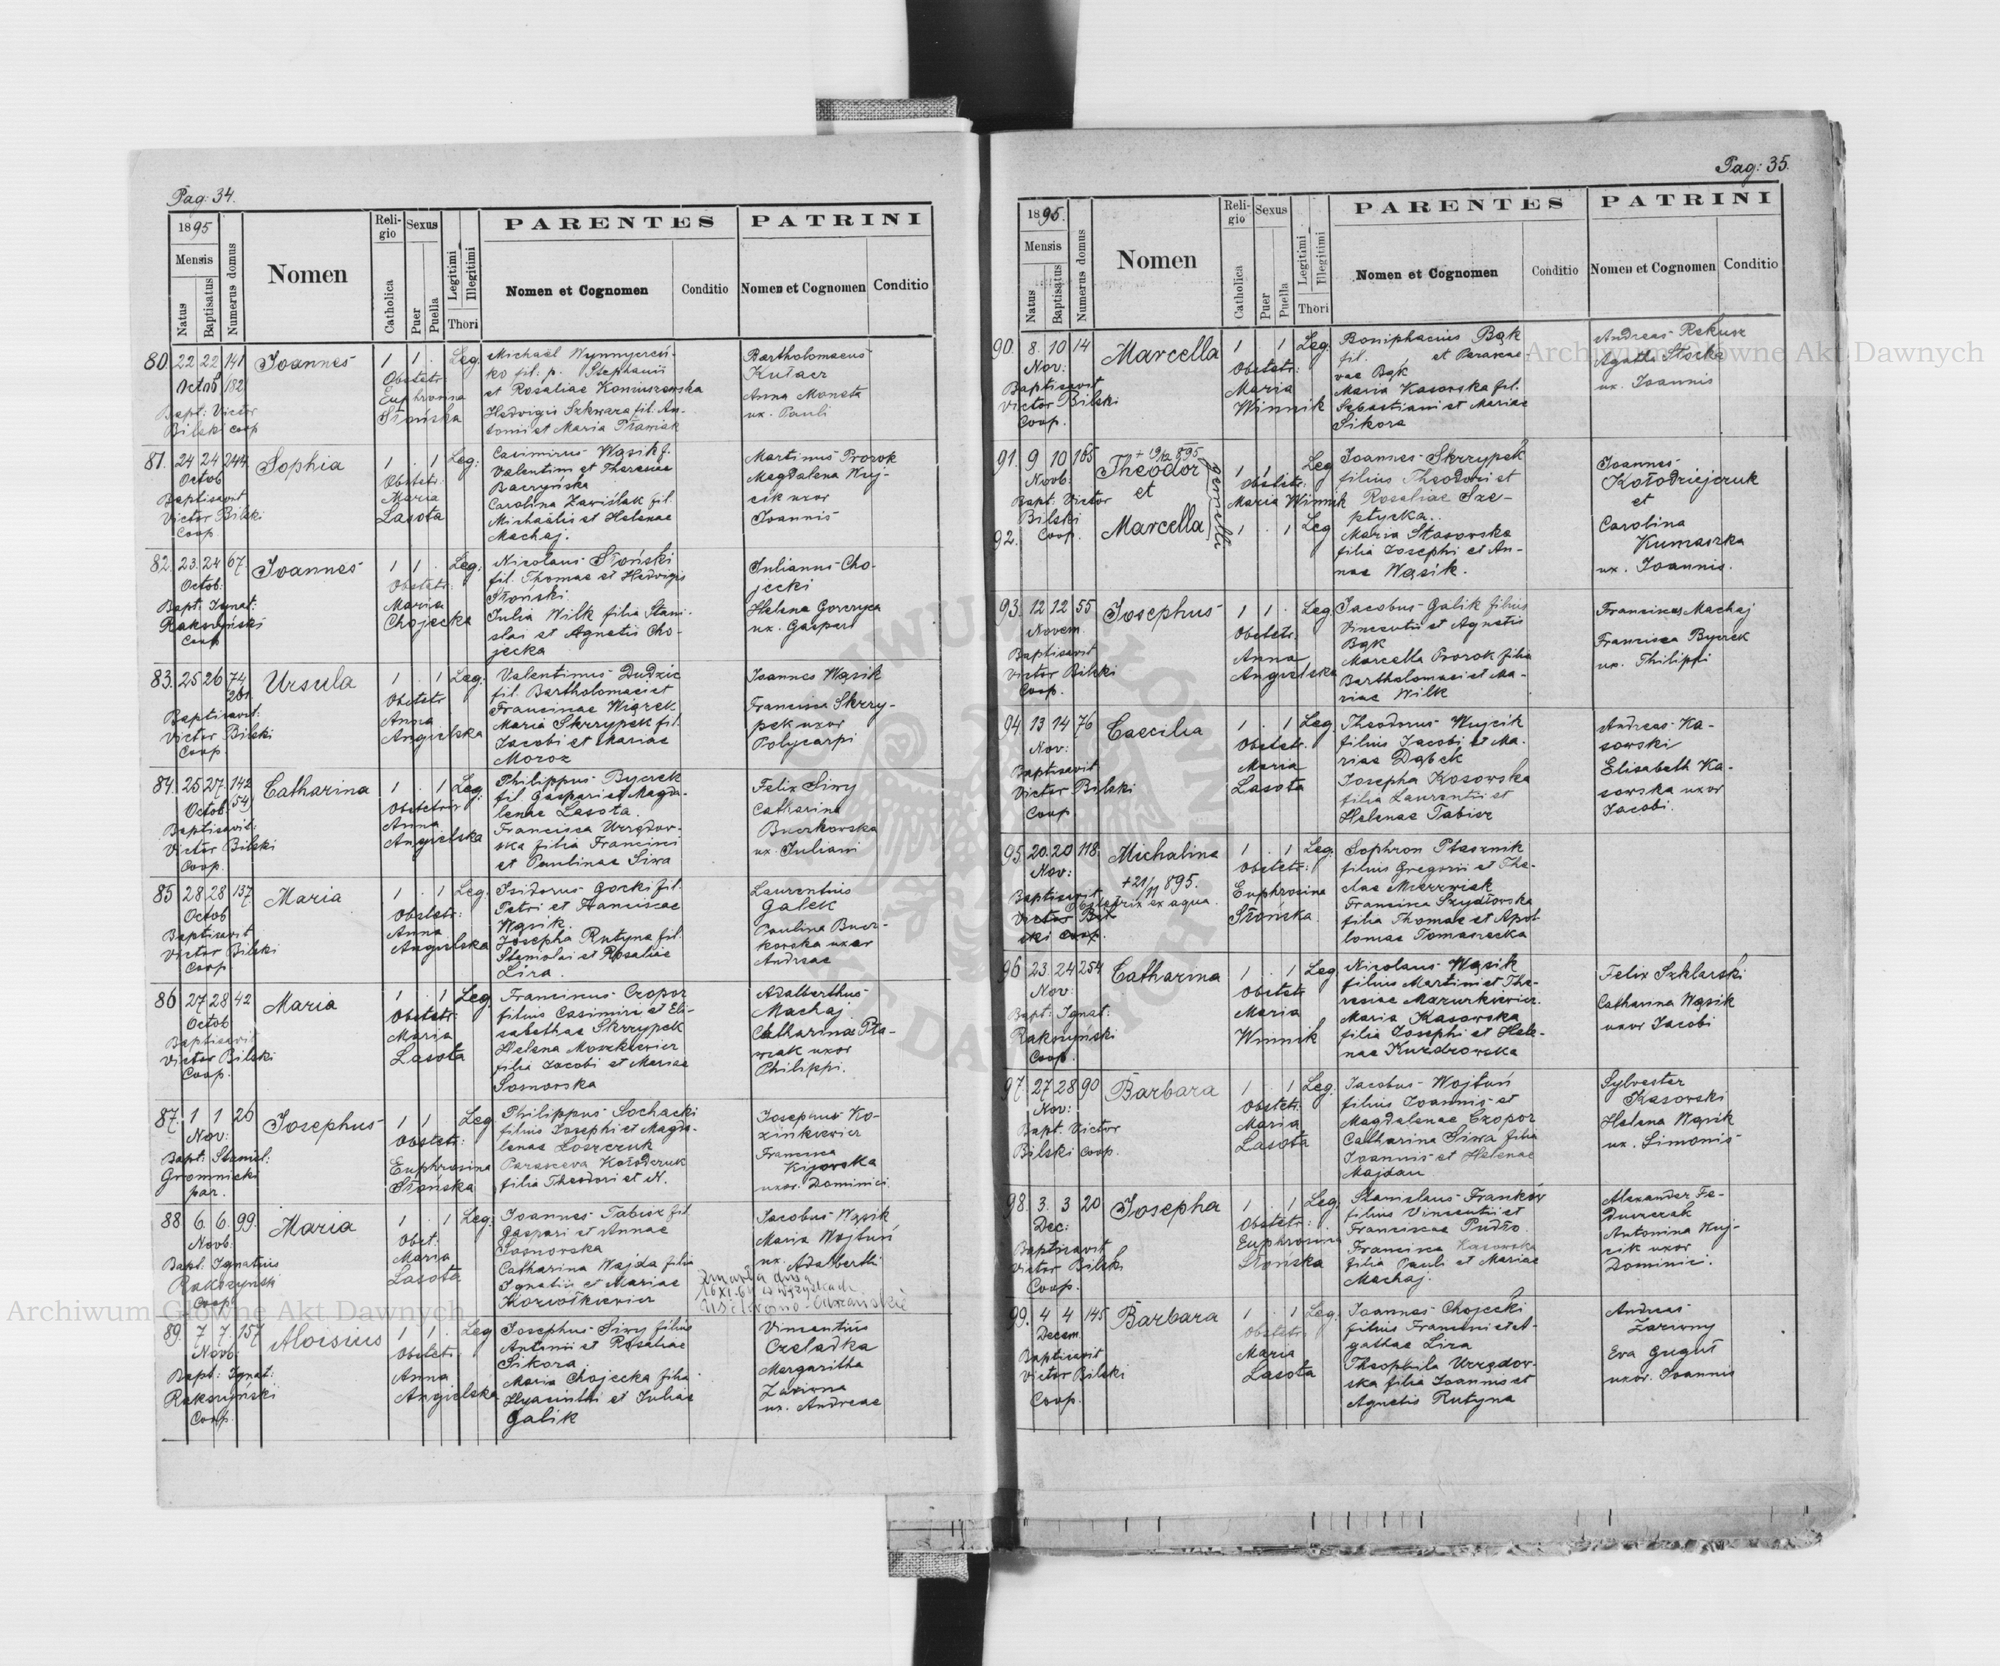 Pag: 34.
1895
Mensis
Natus
Baptisatus
Numerus domus
Nomen
Religio
Catholica
Sexus
Puer
Puella
Legitimi
Illegitimi
Thori
PARENTES
Nomen et Cognomen
Conditio
PATRINI
Nomen et Cognomen
Conditio
80. 22 22 141 Joannes 1 1 . Leg.
Octob 182
Bapt: Victor
Bilski Coop
Obstetr:
Euphrosina
Słońska
Michaël
ko fil. p. Stephanii
et Rosaliae
Hedvigis Szkwara fil. An-
tonii et Maria
Bartholomaeus
Kułacz
Anna Moneta
ux. Pauli
81. 24 24 244 Sophia 1 . 1 Leg:
Octob
Baptisavit
Victor Bilski
Coop
Obstetr:
Maria
Lasota
Casimirus Wąsik f.
Valentini et Theresiae
Baczyńska
Carolina Zawiślak fil.
Michaëlis et Helenae
Machaj.
Martinus Prorok
Magdalena Wuj-
cik uxor
Joannis
82. 23. 24 67. Joannes 1 1 . Leg:
Octob.
Bapt: Ignat:
Rakszyński
Coop
Obstetr:
Maria
Chojecka
Nicolaus Słoński
fil. Thomae et Hedvigis
Słoński.
Julia Wilk filia Stani-
slai et Agnetis Cho-
jecka
Julianus Cho-
jecki
Helena Gorczyca
ux. Gaspari
83. 25 26 74 Ursula 1 . 1 Leg:
261
Baptisavit:
Victor Bilski
Coop.
Obstetr
Anna
Angielska
Valentinus Dudzic
fil. Bartholomaei et
Franciscae Wącek
Maria Skrzypek fil.
Jacobi et Mariae
Moroz
Joannes Wąsik
Francisca Skrzy-
pek uxor
Polycarpi
84. 25 27 142 Catharina 1 . 1 Leg:
Octob. 54)
Baptisavit:
Victor Bilski
Coop.
Obstetrix
Anna
Angielska
Philippus Byczek
fil. Gaspari et Magda-
lenae Lasota.
Francisca Urzędow-
ska filia Francisci
et Paulinae Siwa
Felix Siwy
Catharina
Buczkowska
ux. Juliani
85 28 28 137 Maria 1 . 1 Leg:
Octob
Baptisavit
Victor Bilski
Coop
Obstetr:
Anna
Angielska
Isidorus Gocki fil.
Petri et Franciscae
Wąsik.
Josepha Rutyna fil.
Stanislai et Rosaliae
Lira.
Laurentius
Galek
Paulina Bucz-
kowska uxor
Andreae
86 27 28 42 Maria 1 . 1 Leg
Octob
Baptisavit
Victor Bilski
Coop.
Obstetr:
Maria
Lasota
Franciscus Czopor
filius Casimiri et Eli-
sabethae Skrzypek
Helena Moszkiewicz
filia Jacobi et Mariae
Sosnowska
Adalberthus
Machaj
Catharina Pta-
wiak uxor
Philippi.
87. 1 1 26 Josephus 1 1 Leg
Nov:
Bapt: Stanisl:
Gromnicki
par.
Obstetr:
Euphrosina
Słońska
Philippus Sochacki
filius Josephi et Magda-
lenae Loszczuk
Parasceva Kołodczuk
filia Theodori et N.
Josephus Ko-
zinkiewicz
Francisca
Kijowska
uxor. Dominici
88 6. 6. 99. Maria 1 . 1 Leg:
Novb.
Bapt. Ignatius
Rakszyński
Coop
Obst.:
Maria
Lasota
Joannes Tabisz fil
Gaspari et Annae
Sosnowska
Catharina Wajda filia
Ignatii et Mariae
Koziołkiewicz
Jacobus Wąsik
Maria Wojtuń
ux. Adalberti
Zmarła dnia
89. 7 7. 157 Aloisius 1 1 . Leg
Novb
Bapt: Ignat:
Rakszyński
Coop.
Obstetr:
Anna
Angielska
Josephus Siwy filius
Antonii et Rosaliae
Sikora
Maria Chojecka filia
Hyacinthi et Juliae
Galik
Vincentius
Czeladka
Margaritha
Zariwna
ux. Andreae
Pag: 35.
1895.
Mensis
Natus
Baptisatus
Numerus domus
Nomen
Religio
Catholica
Sexus
Puer
Puella
Legitimi
Illegitimi
Thori
PARENTES
Nomen et Cognomen
Conditio
PATRINI
Nomen et Cognomen
Conditio
90. 8. 10 14 Marcella 1 1 Leg
Nov:
Baptisavit
Victor Bilski
Coop.
Obstetr:
Maria
Winnik
Boniphacius Bąk
fil. et Parasce-
vae Bąk
Maria Kasowska fil.
Sebastiani et Mariae
Sikora
Andreas Rekusz
Agatha Słocka
ux. Joannis
91. 9 10 165 + 19/12 895 Theodor 1 1 . Leg
Novb:
et
Bapt. Victor
Bilski
Coop.
Obstetr:
Maria Winnik
gemelli
92. Marcella 1 . 1 Leg
Joannes Skrzypek
filius Theodori et
Rosaliae Sze-
ptycka.
Maria Stasowska
filia Josephi et An-
nae Wąsik.
Joannes
Kołodziejczuk
et
Carolina
Kumaszka
ux. Joannis.
93. 12 12 55 Josephus 1 1 . Leg
Novem
Baptisavit
Victor Bilski
Coop.
Obstetr.
Anna
Angielska
Jacobus Galik filius
Vincentii et Agnetis
Bąk
Marcella Prorok filia
Bartholomaei et Ma-
riae Wilk
Franciscus Machaj
Francisca Byczek
ux. Philippi
94 13 14 76 Caecilia 1 . 1 Leg.
Nov:
Baptisavit
Victor Bilski
Coop
Obstetr.
Maria
Lasota
Theodorus Wujcik
filius Jacobi et Ma-
riae Dąbek
Josepha Kosowska
filia Laurentii et
Helenae Tabisz
Andreas Ka-
sowski
Elisabeth Ka-
sowska uxor
Jacobi.
95 20. 20 118. Michalina 1 . 1 Leg:
Nov:
+ 21/11 895.
Baptisavit Obstetrix ex aqua.
Victor Bil-
ski Coop.
Obstetr:
Euphrosina
Słońska.
Sophron Ptasznik
filius Gregorii et The-
clae Mierzwiak
Francisca Szydłowska
filia Thomae et Apol-
loniae Tomaszecka
96 23. 24 254 Catharina 1 . 1 Leg
Nov:
Bapt: Ignat:
Rakszyński
Coop
Obstetr
Maria
Winnik
Nicolaus Wąsik
filius Martini et The-
resiae Mazurkiewicz.
Maria Kasowska
filia Josephi et Hele-
nae Kuzdrowska
Felix Szklarski
Catharina Wąsik
uxor Jacobi
97. 27 28 90 Barbara 1 . 1 Leg.
Nov:
Bapt. Victor
Bilski Coop.
Obstetr:
Maria
Lasota
Jacobus Wojtuń
filius Joannis et
Magdalenae Czopor
Catharina Siwa filia
Joannis et Helenae
Majdan
Sylvester
Kasowski
Helena Wąsik
ux. Simonis
98. 3. 3 20 Josepha 1 . 1 Leg:
Dec:
Baptisavit
Victor Bilski
Coop.
Obstetr:
Euphrosina
Słońska
Stanislaus Franków
filius Vincentii et
Franciscae Pudło.
Francisca Kasowska
filia Pauli et Mariae
Machaj.
Alexander Fe-
Antonina Wuj-
cik uxor
Dominici.
99. 4 4 145 Barbara 1 . 1 Leg.
Decem
Baptisavit
Victor Bilski
Coop.
Obstetr:
Maria
Lasota
Joannes Chojecki
filius Francisci et A-
gathae Lira
Theophila Urzędow-
ska filia Joannis et
Agnetis Rutyna
Andreas
Zariwny
Eva Guguł
uxor. Joannis
Archiwum Główne Akt Dawnych
Archiwum Główne Akt Dawnych
ARCHIWUM GŁÓWNE AKT DAWNYCH